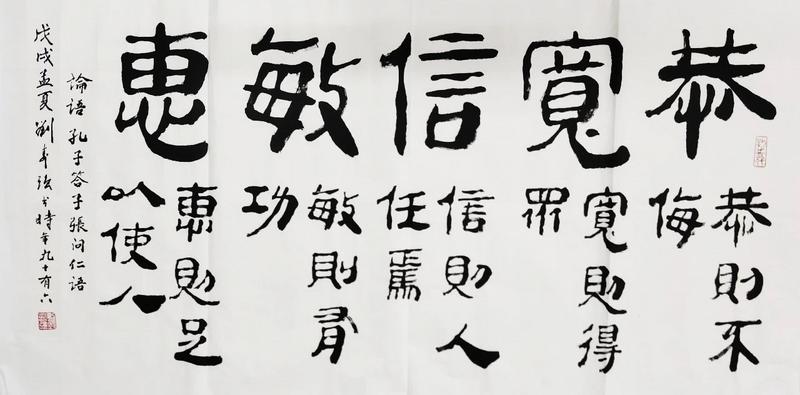 恭寬信敏惠
恭則不
侮
寬則得
眾
信則人
任焉
敏則有
功
惠則足
以使人
論語孔子答子張問仁語
戊戌孟夏劉書時年九十有六